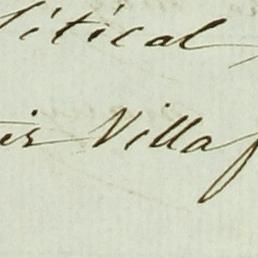 litical
is Villa